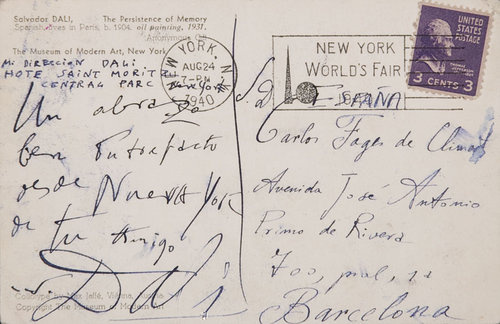 Salvador DALI, The Persistence of Memory
Spanish, lives in Paris, b. 1904. oil painting, 1931.
Anonymous
The Museum of Modern Art, New York
Mi DIRECCION DALI
HOTE SAINT MORITH
CENTRAG PARC New York
Un abrazo
ben Putrefacto
desde Nueva York
de tu Amigo
Dalí
Collotype by Max Jaffé, Vienna, Austria
Copyright The Museum of Modern Art
NEW YORK, N.Y.
AUG 24
7-PM
1940
NEW YORK
WORLD'S FAIR
UNITED STATES
POSTAGE
3 CENTS 3
S.D.
ESPAÑA
Carlos Fages de Climent
Avenida José Antonio
Primo de Rivera
700, pral, 2a
Barcelona